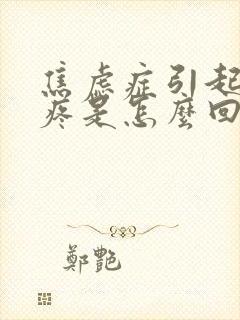 焦虑症引起
疼是怎麽回
鄭艷